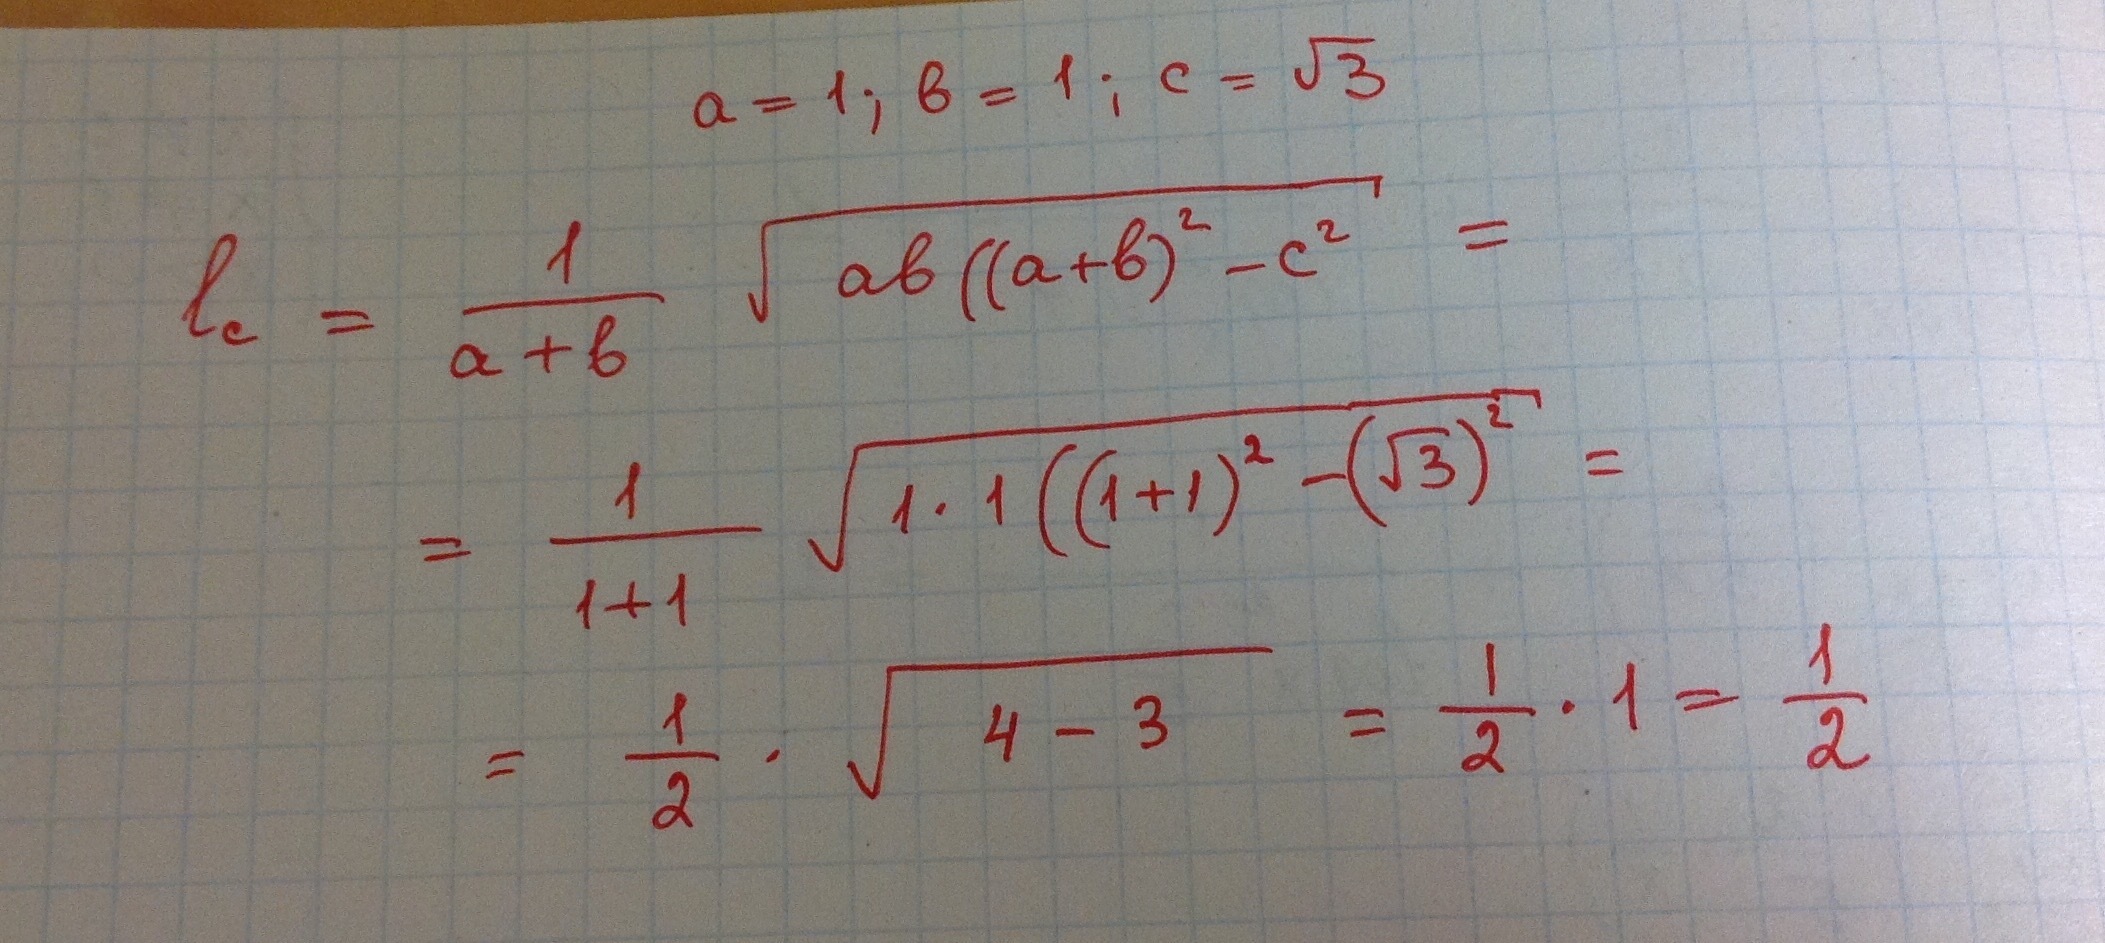 a = 1; b = 1; c = √3
l_c = 1/(a+b) √(ab((a+b)² - c²) =
= 1/(1+1) √(1·1((1+1)² - (√3)²) =
= 1/2 · √(4-3) = 1/2 · 1 = 1/2